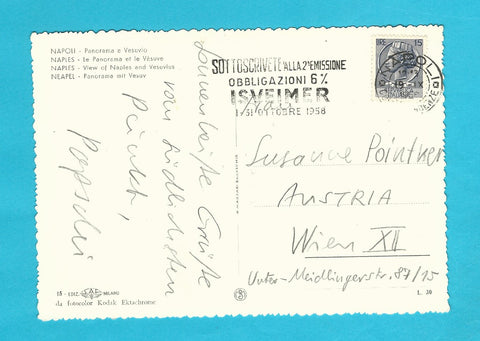 NAPOLI - Panorama e Vesuvio
NAPLES - Le Panorama et le Vésuve
NAPLES - View of Naples and Vesuvius
NEAPEL - Panorama mit Vesuv
SOTTOSCRIVETE ALLA 2ª EMISSIONE
OBBLIGAZIONI 6%
ISVEIMER
1-31 OTTOBRE 1958
LIRE 15
Sonnenheiße Grüße
vom südlichsten
Punkt,
Papschi
Susanne Pointner
AUSTRIA
Wien XII
Unter-Meidlingerstr. 87/15
EDIZ. SAF MILANO
da fotocolor Kodak Ektachrome
S
L. 30